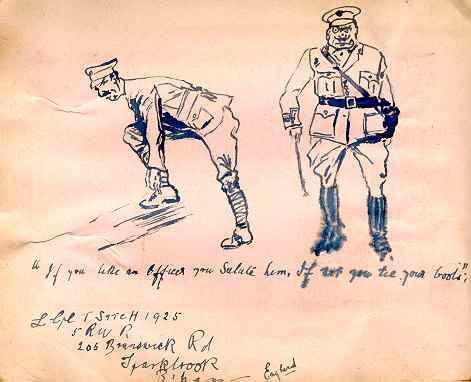 "If you like an Officer you Salute him, If not you tie your boots";
L Cpl T 1925
5 RWR
205 Brunswick Rd
Sparkbrook
B'ham England